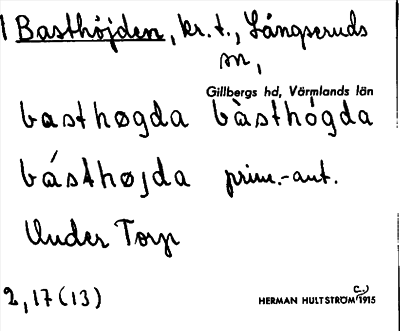 1 Basthöjden, kr. t., Långseruds
sn,
Gillbergs hd, Värmlands län
basthøgda bàsthǿgda
básthøjda prim.-ant.
Under Torp
2, 17 (13)
HERMAN HULTSTRÖM c. 1915